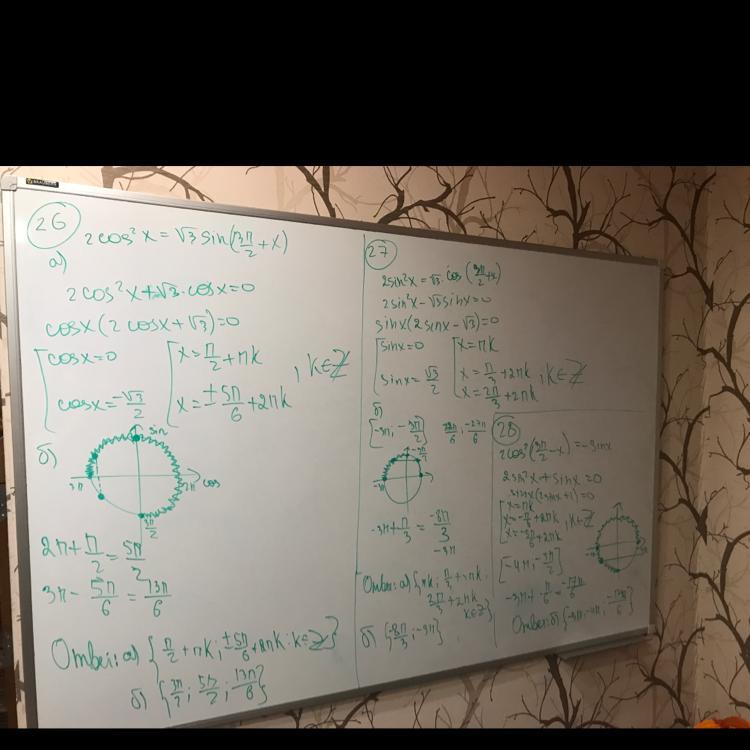 26
2cos²x = √3 sin(3π/2 + x)
а)
2cos²x + √3·cosx = 0
cosx(2cosx + √3) = 0
[cosx = 0 [x = π/2 + πk
[cosx = -√3/2 [x = ±5π/6 + 2πk , k∈Z
б)
sin
3π 2π cos
3π/2
2π + π/2 = 5π/2
3π - 5π/6 = 13π/6
Ответ: а) {π/2 + πk; ±5π/6 + 2πk : k∈Z}
б) {3π/2; 5π/2; 13π/6}
27
2sin²x = √3·cos(3π/2 + x)
2sin²x - √3sinx = 0
sinx(2sinx - √3) = 0
[sinx = 0 [x = πk
[sinx = √3/2 [x = π/3 + 2πk , k∈Z
[x = 2π/3 + 2πk
б)
[-3π; -3π/2]
-3π
-3π + π/3 = -8π/3
-3π
Ответ: а) {πk; π/3 + 2πk
2π/3 + 2πk
k∈Z}
б) {-8π/3; -3π}
28
2cos²(3π/2 - x) = -sinx
2sin²x + sinx = 0
sinx(2sinx + 1) = 0
[x = πk
[x = -π/6 + 2πk , k∈Z
[x = -5π/6 + 2πk
-3π + π/6 = -17π/6
Ответ: б)